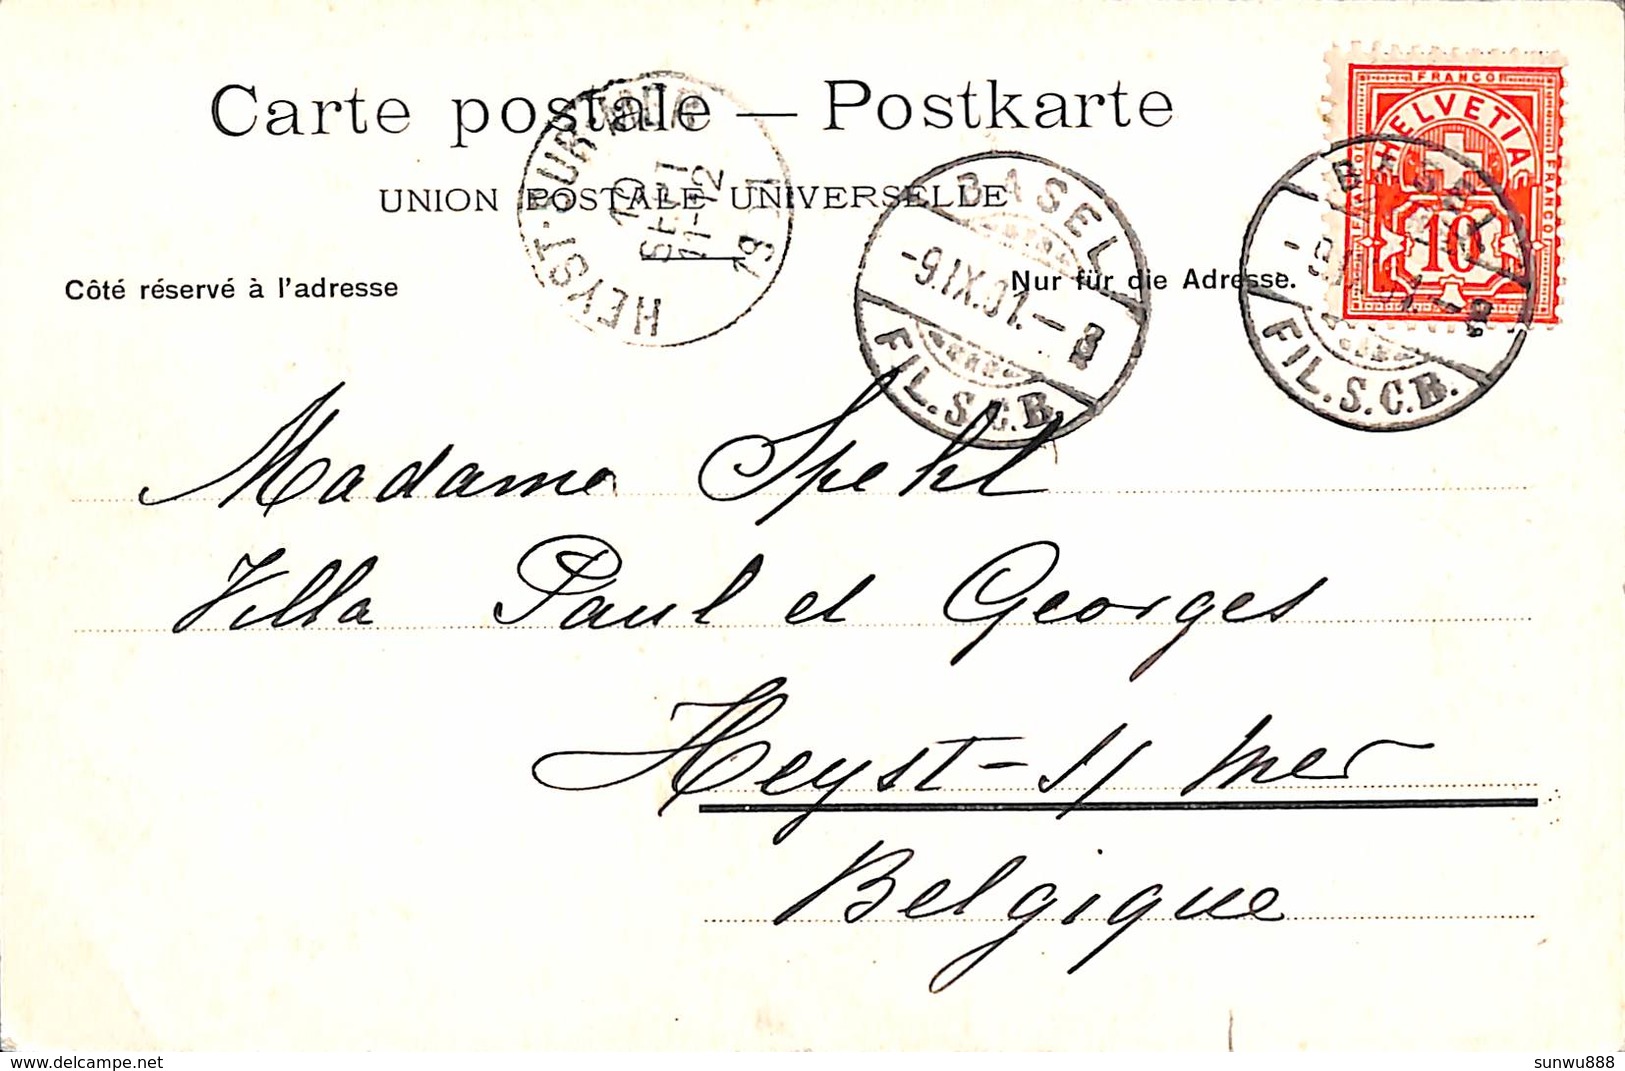 Carte postale — Postkarte
UNION POSTALE UNIVERSELLE
Côté réservé à l'adresse
Nur für die Adresse.
FRANCO
HELVETIA
FRANCO
10
HEYST-SUR-MER
10
SEPT
11-12
1901
BASEL
-9.IX.01.-8
FIL.S.C.B.
BASEL
-9.IX.01.-8
FIL.S.C.B.
Madame Spehl
Villa Paul et Georges
Heyst-s/ mer
Belgique
www.delcampe.net
sunwu888